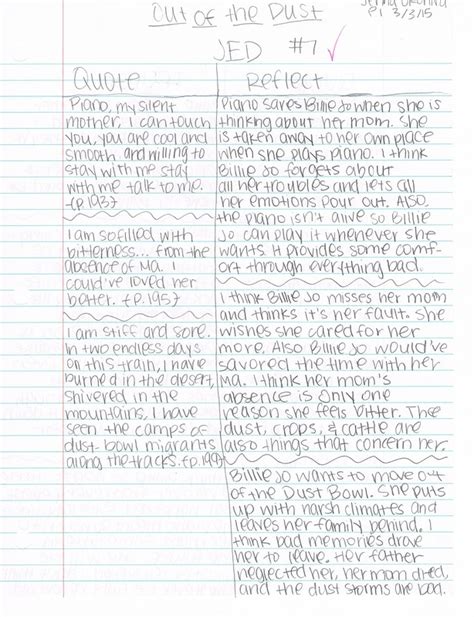 Out of the Dust
P1 3/3/15
JED #7
Quote
Piano, my silent
mother, I can touch
you, you are cool and
smooth and willing to
stay with me stay
with me talk to me.
{p.193}
I am so filled with
bitterness... from the
absence of Ma. I
could've loved her
better. {p.195}
I am stiff and sore.
In two endless days
on this train, I have
burned in the desert,
shivered in the
mountains, I have
seen the camps of
dust-bowl migrants
along the tracks. {p.199}
Reflect
Piano saves Billie Jo when she is
thinking about her mom. She
is taken away to her own place
when she plays piano. I think
Billie Jo forgets about
all her troubles and lets all
her emotions pour out. Also,
the piano isn't alive so Billie
Jo can play it whenever she
wants. It provides some comf-
ort through everything bad.
I think Billie Jo misses her mom
and thinks it's her fault. She
wishes she cared for her
more. Also Billie Jo would've
savored the time with her
Ma. I think her mom's
absence is only one
reason she feels bitter. The
dust, crops, & cattle are
also things that concern her.
Billie Jo wants to move out
of the Dust Bowl. She puts
up with harsh climates and
leaves her family behind. I
think bad memories drove
her to leave. Her father
neglected her, her mom died,
and the dust storms are bad.